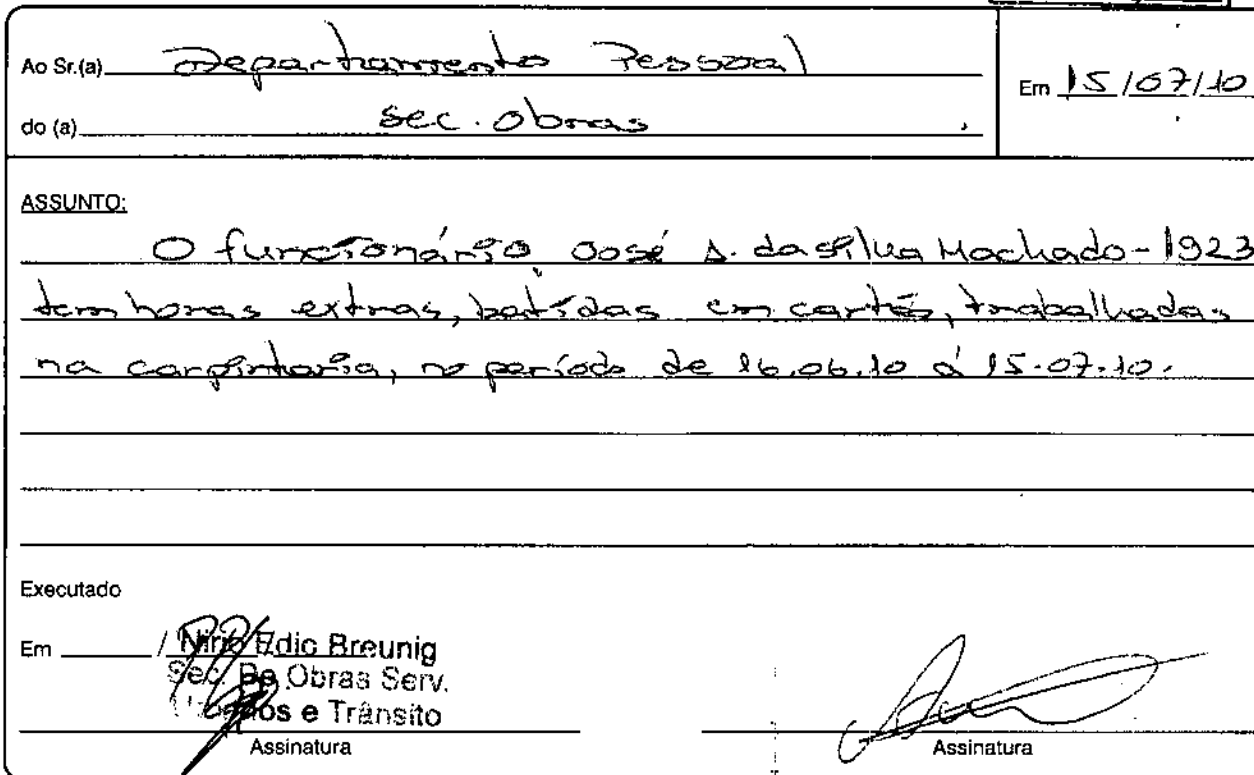 Ao Sr.(a) Departamento Pessoal
Em 15/07/10
do (a) Sec. Obras
ASSUNTO:
O funcionário José A. da Silva Machado - 1923
tem horas extras, batidas em cartão, trabalhadas
na carpintaria, no período de 16.06.10 á 15.07.10.
Executado
Em / Nirio Edio Breunig
Sec. De Obras Serv.
e Trânsito
Assinatura
Assinatura